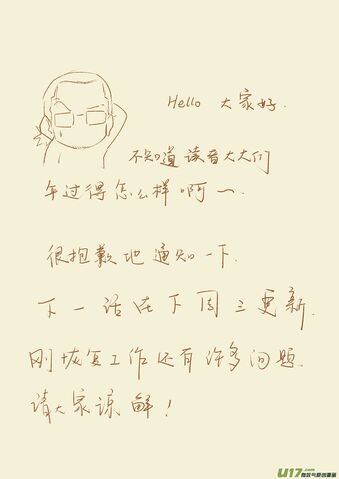 Hello 大家好.
不知道读者大大们
年过得怎么样啊~.
很抱歉地通知一下.
下一话在下周三更新.
刚恢复工作还有许多问题.
请大家谅解!
U17.com
有妖气原创漫画